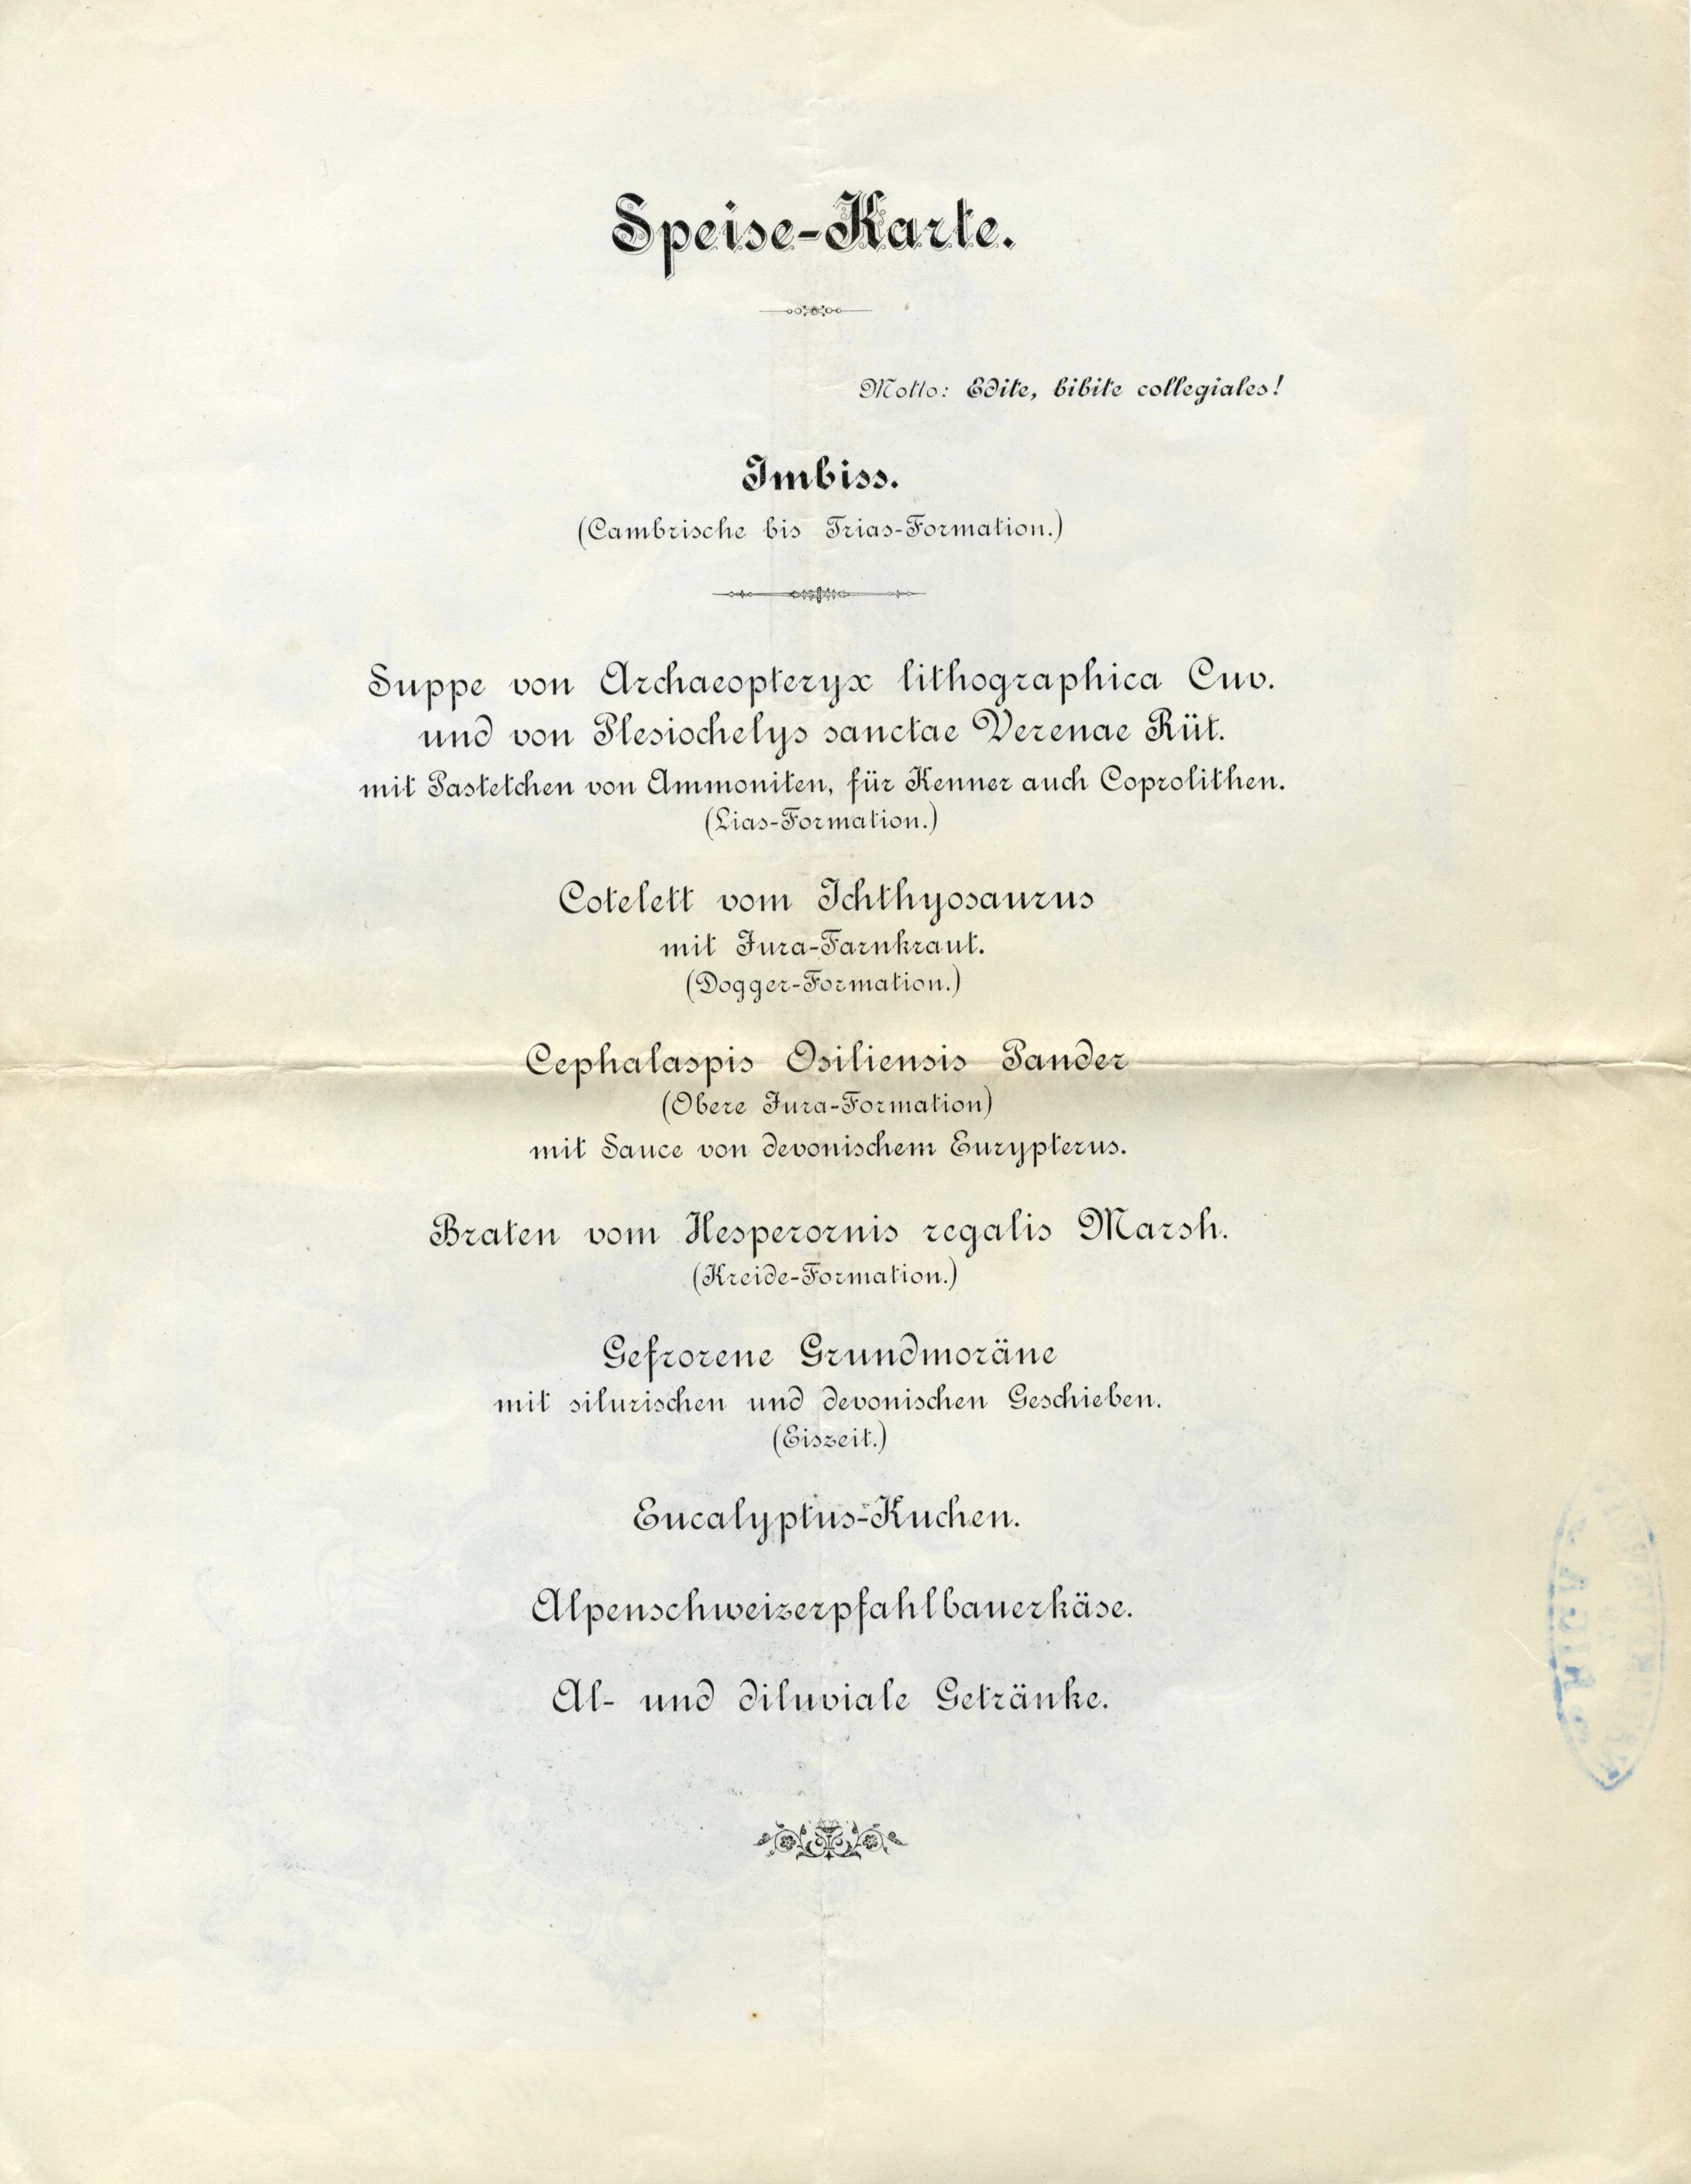 Speise-Karte.
Motto: Edite, bibite collegiales!
Imbiss.
(Cambrische bis Trias-Formation.)
Suppe von Archaeopteryx lithographica Cuv.
und von Plesiochelys sanctae Verenae Rüt.
mit Pastetchen von Ammoniten, für Kenner auch Coprolithen.
(Lias-Formation.)
Cotelett vom Ichthyosaurus
mit Jura-Farnkraut.
(Dogger-Formation.)
Cephalaspis Osiliensis Pander
(Obere Jura-Formation)
mit Sauce von devonischem Eurypterus.
Braten vom Hesperornis regalis Marsh.
(Kreide-Formation.)
Gefrorene Grundmoräne
mit silurischen und devonischen Geschieben.
(Eiszeit.)
Eucalyptus-Kuchen.
Alpenschweizerpfahlbauerkäse.
Al- und diluviale Getränke.